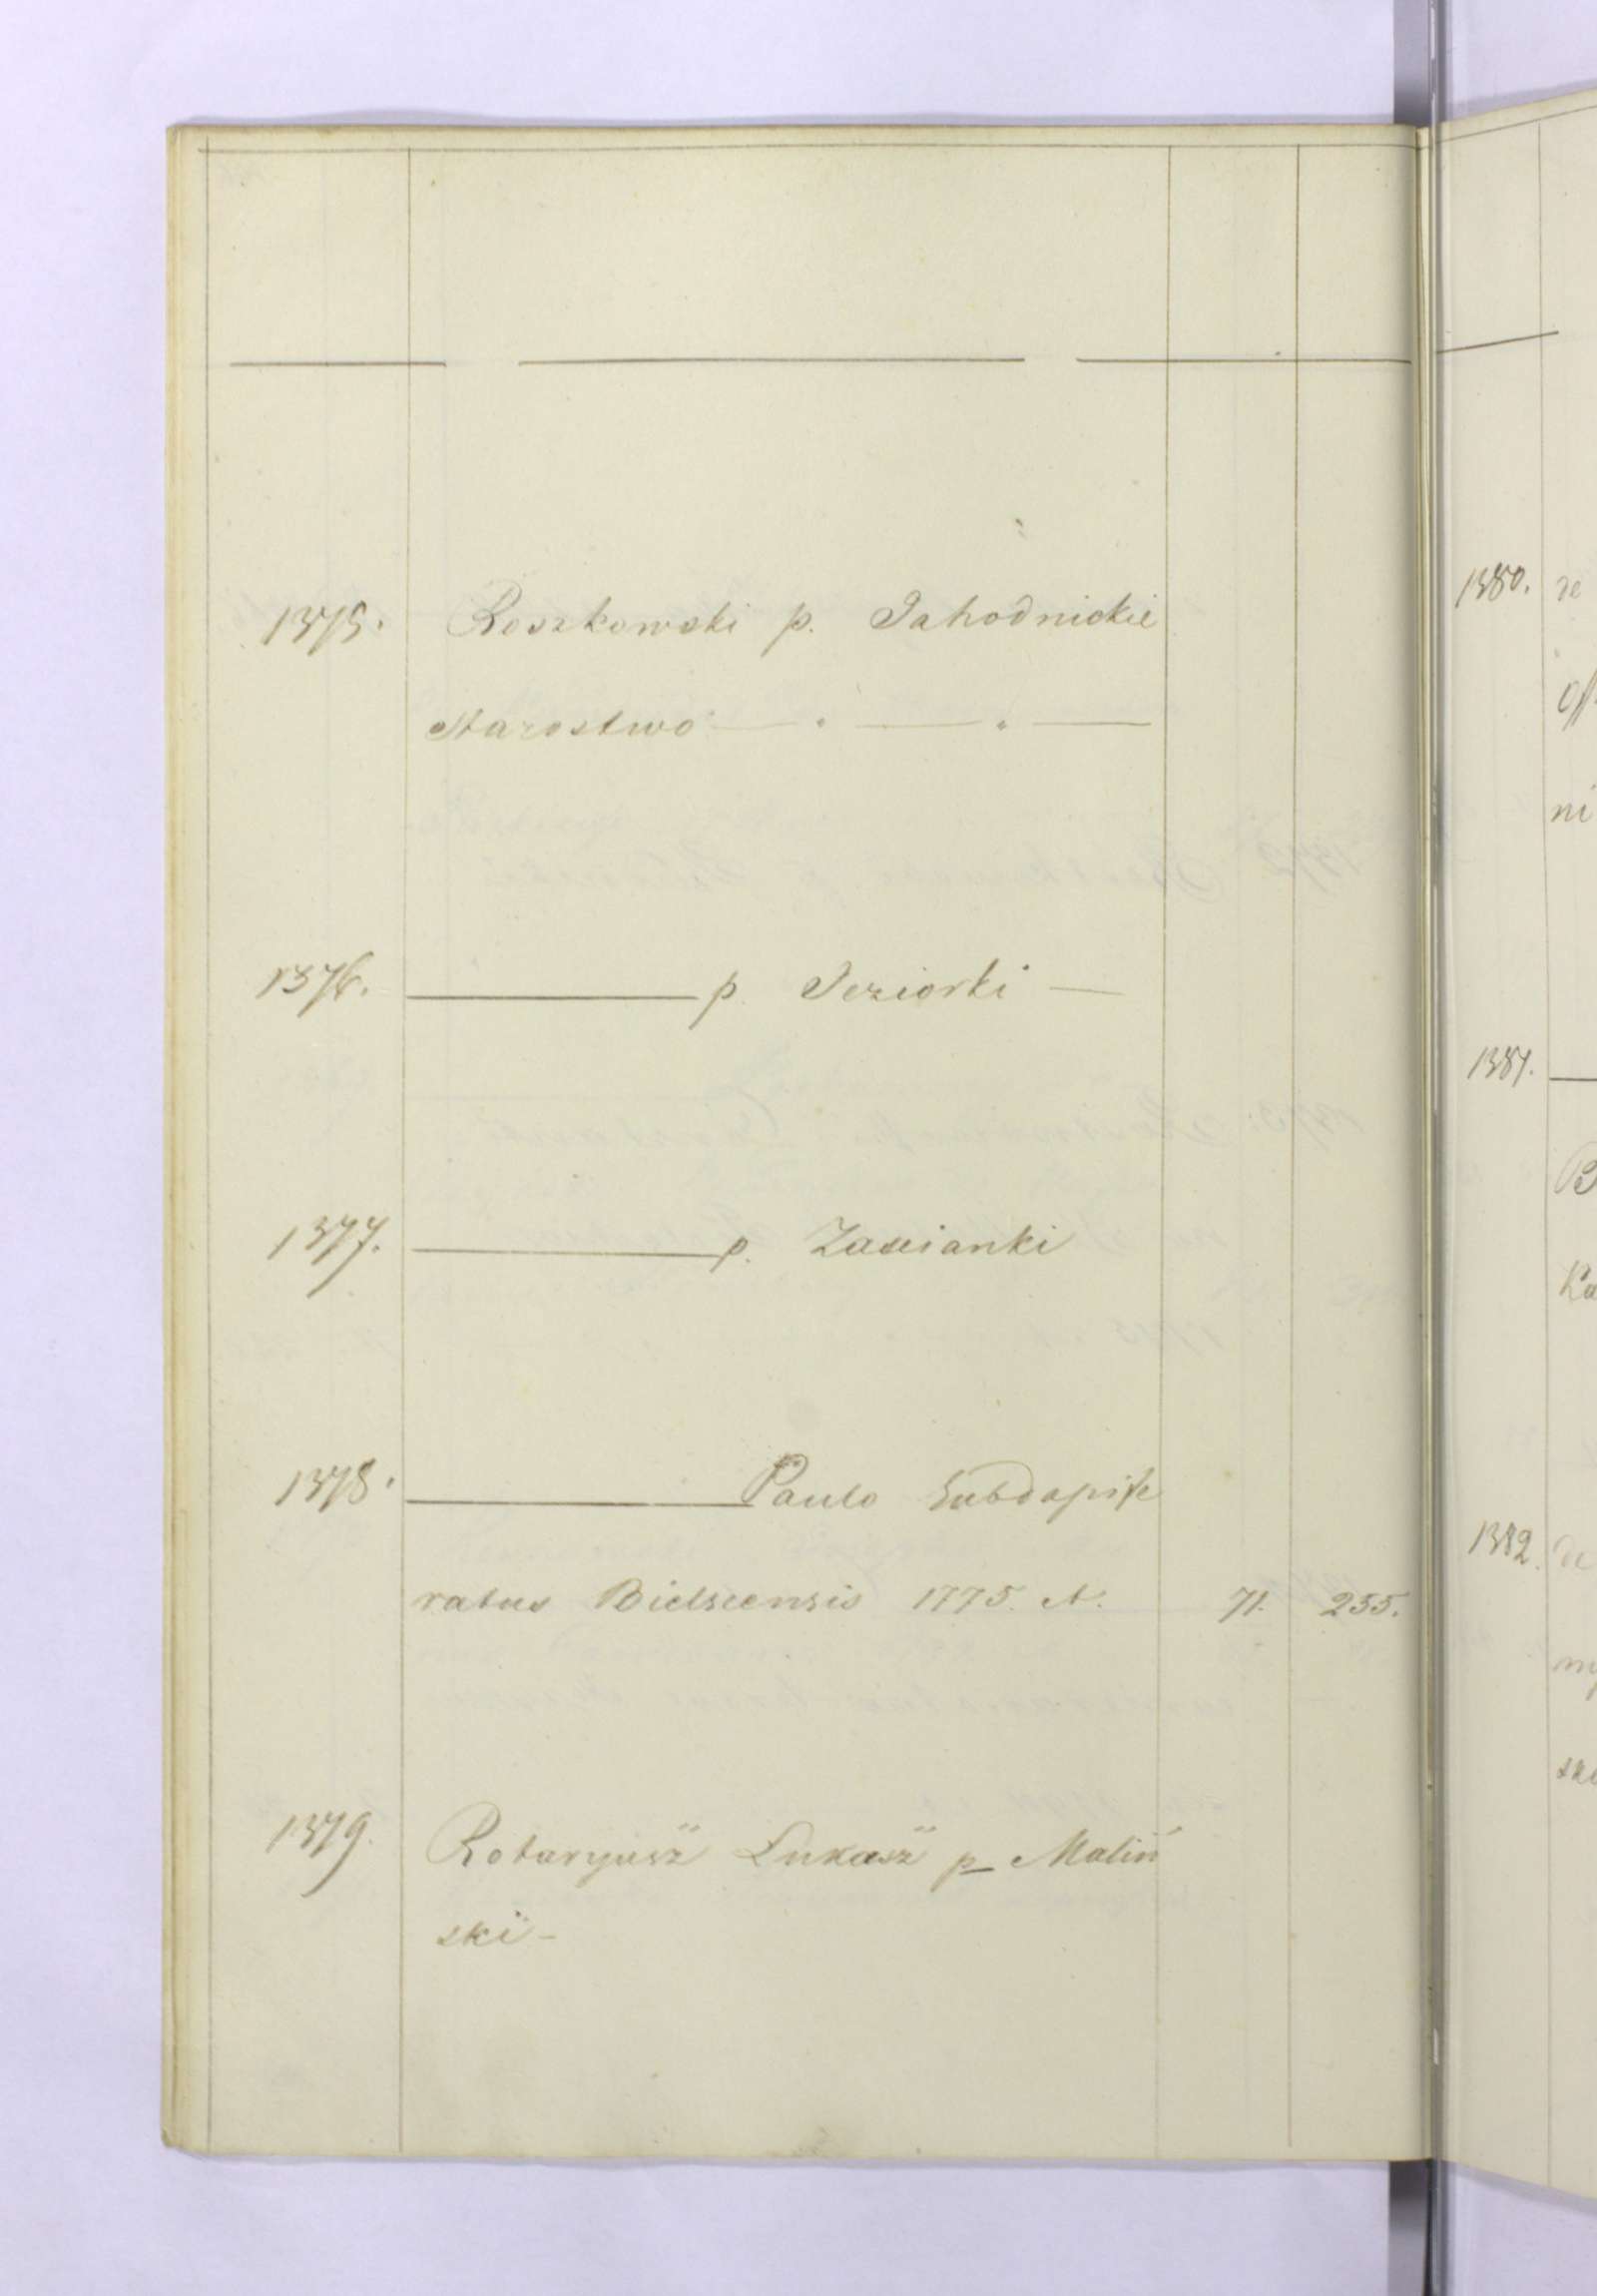 1375. Roszkowski p. Jahodnickie
Starostwo — " — " —
1376. — p. Jeziorki —
1377. — p. Zasianki
1378. — Paulo Subdapife
ratus Bielscensis 1775. N. 71. 255.
1379. Rotaryusz Łukasz p Maliń
ski -
1380. re
Off
ni
1381. —
B
Ka
1382. de
my
ska